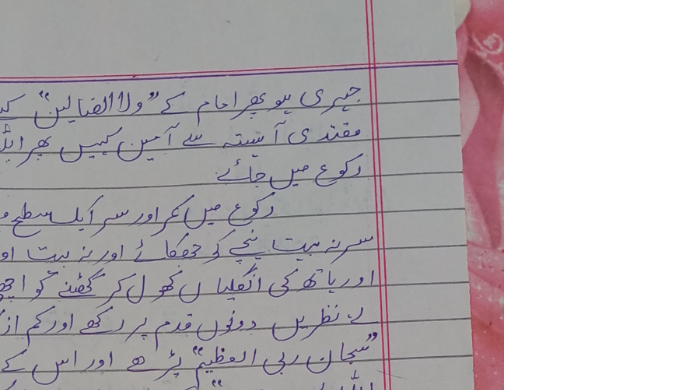 جہری ہو پھر امام کے "ولاالضالین"
مقتدی آہستہ سے آمین کہیں پھر
رکوع میں جائے۔
رکوع میں کمر اور سر ایک سطح
سر نہ بہت نیچے کو جھکائے اور نہ بہت
اور ہاتھ کی انگلیاں کھول کر گھٹنے کو
لے، نظریں دونوں قدم پر رکھے اور کم از
"سبحان ربی العظیم" پڑھے اور اس کے